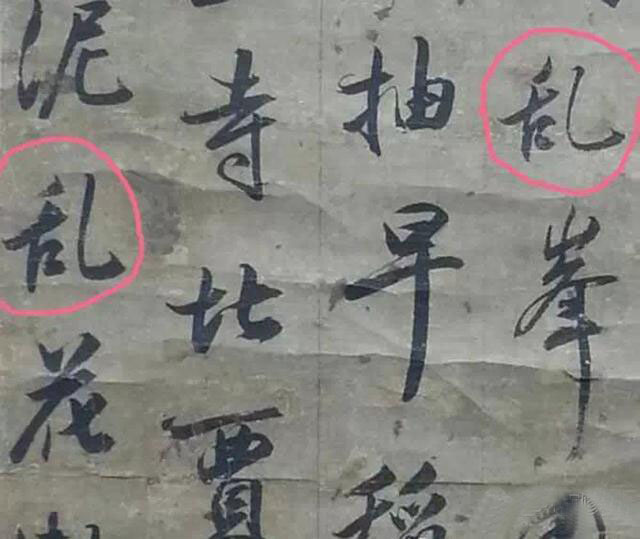 乱峯
抽早稻
寺北賈
泥乱花